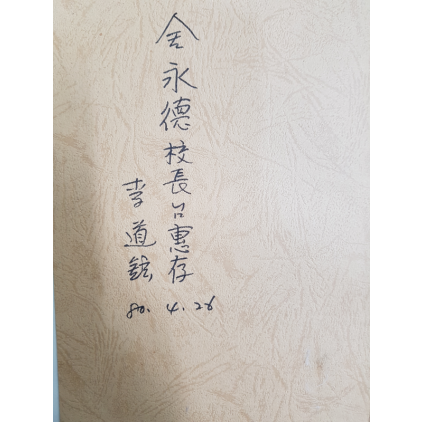 金永德校長님惠存
李道鉉
80. 4. 26